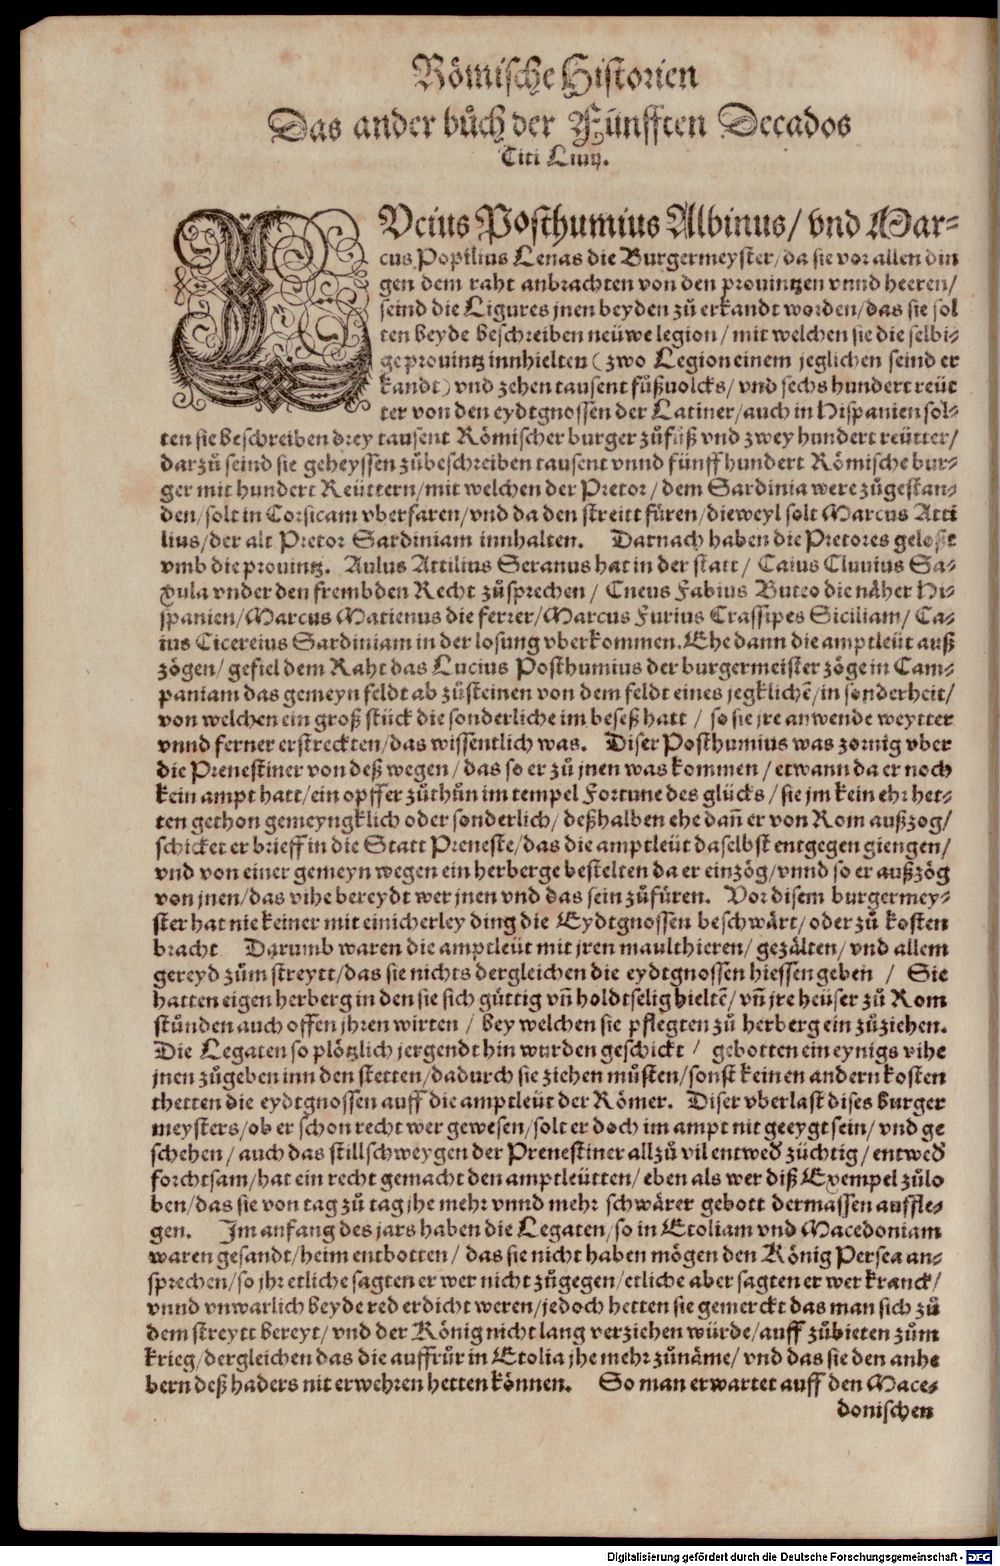 Römische Historien
Das ander bůch der Fünfften Decados
Titi Liuij.
LVcius Posthumius Albinus/ vnd Mar-
cus Popilius Lenas die Burgermeyster/ da sie vor allen din
gen dem raht anbrachten von den prouintzen vnnd heeren/
seind die Ligures jnen beyden zů erkandt worden/ das sie sol
ten beyde beschreiben neüwe legion/ mit welchen sie die selbi-
ge prouintz innhielten (zwo Legion einem jeglichen seind er
kandt) vnd zehen tausent fůßuolcks/ vnd sechs hundert reüt
ter von den eydtgnossen der Latiner/ auch in Hispanien sol-
ten sie beschreiben drey tausent Römischer burger zůfůß vnd zwey hundert reütter/
darzů seind sie geheyssen zůbeschreiben tausent vnnd fünff hundert Römische bur-
ger mit hundert Reüttern/ mit welchen der Pretor/ dem Sardinia were zůgestan-
den/ solt in Corsicam vberfaren/ vnd da den streitt füren/ dieweyl solt Marcus Atti
lius/ der alt Pretor Sardiniam innhalten. Darnach haben die Pretores geloßt
vmb die prouintz. Aulus Attilius Seranus hat in der statt/ Caius Cluuius Sa-
xula vnder den frembden Recht zůsprechen/ Cneus Fabius Buteo die näher Hi-
spanien/ Marcus Matienus die ferrer/ Marcus Furius Crassipes Siciliam/ Ca-
ius Cicereius Sardiniam in der losung vberkommen. Ehe dann die amptleüt auß
zögen/ gefiel dem Raht das Lucius Posthumius der burgermeister zöge in Cam-
paniam das gemeyn feldt ab zůsteinen von dem feldt eines jegklichē/ in sonderheit/
von welchen ein groß stück die sonderliche im beseß hatt/ so sie jre anwende weytter
vnnd ferner erstreckten/ das wissentlich was. Diser Posthumius was zornig vber
die Prenestiner von deß wegen/ das so er zů jnen was kommen/ etwann da er noch
kein ampt hatt/ ein opffer zůthůn im tempel Fortune des glücks/ sie jm kein ehr het-
ten gethon gemeyngklich oder sonderlich/ deßhalben ehe dañ er von Rom außzog/
schicket er brieff in die Statt Preneste/ das die amptleüt daselbst entgegen giengen/
vnd von einer gemeyn wegen ein herberge bestelten da er einzög/ vnnd so er außzög
von jnen/ das vihe bereydt wer jnen vnd das sein zůfüren. Vor disem burgermey-
ster hat nie keiner mit einicherley ding die Eydtgnossen beschwärt/ oder zů kosten
bracht Darumb waren die amptleüt mit jren maulthieren/ gezälten/ vnd allem
gereyd zům streytt/ das sie nichts dergleichen die eydtgnossen hiessen geben / Sie
hatten eigen herberg in den sie sich güttig vñ holdtselig hieltē/ vñ jre heüser zů Rom
stůnden auch offen jhren wirten/ bey welchen sie pflegten zů herberg ein zůziehen.
Die Legaten so plötzlich jergendt hin wurden geschickt/ gebotten ein eynigs vihe
jnen zůgeben inn den stetten/ dadurch sie ziehen můsten/ sonst keinen andern kosten
thetten die eydtgnossen auff die amptleüt der Römer. Diser vberlast dises burger
meysters/ ob er schon recht wer gewesen/ solt er doch im ampt nit geeygt sein/ vnd ge
schehen/ auch das stillschweygen der Prenestiner allzů vil entwed̕ züchtig/ entwed̕
forchtsam/ hat ein recht gemacht den amptleütten/ eben als wer diß Exempel zůlo
ben/ das sie von tag zů tag jhe mehr vnnd mehr schwärer gebott dermassen auffle-
gen. Im anfang des jars haben die Legaten/ so in Etoliam vnd Macedoniam
waren gesandt/ heim entbotten/ das sie nicht haben mögen den König Persea an-
sprechen/ so jhr etliche sagten er wer nicht zůgegen/ etliche aber sagten er wer kranck/
vnnd vnwarlich beyde red erdicht weren/ jedoch hetten sie gemerckt das man sich zů
dem streytt bereyt/ vnd der König nicht lang verziehen würde/ auff zůbieten zům
krieg/ dergleichen das die auffrůr in Etolia jhe mehr zůnäme/ vnd das sie den anhe
bern deß haders nit erwehren hetten können. So man erwartet auff den Mace-
donischen
Digitalisierung gefördert durch die Deutsche Forschungsgemeinschaft - DFG